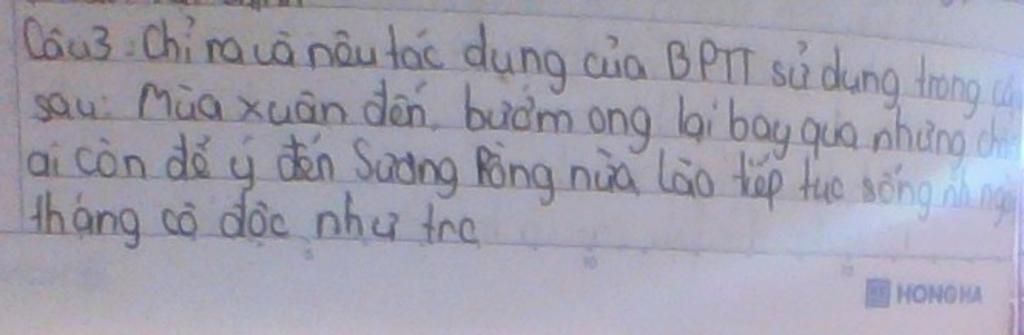 Câu3: Chỉ ra và nêu tác dụng của BPTT sử dụng trong
sau: Mùa xuân đến, bướm ong lại bay qua nhưng
ai còn để ý đến Sương Rồng nữa lão tiếp tục sống
tháng cô độc như trc
HONG HA